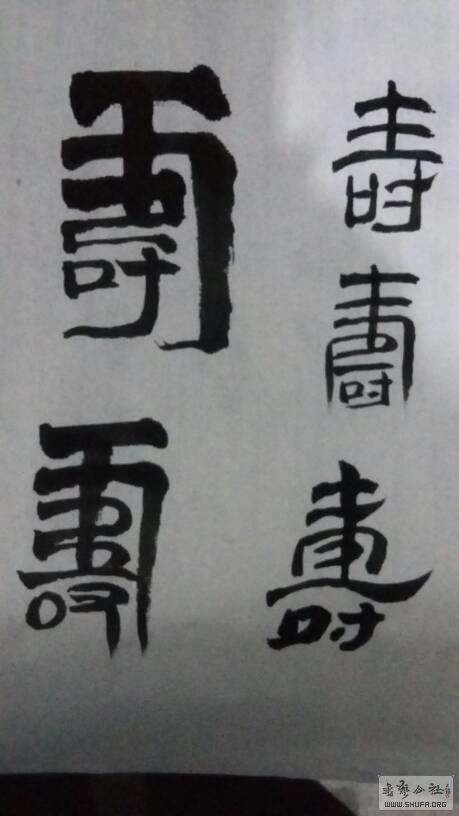 壽
壽
壽
壽
壽
書法公社
WWW.SHUFA.ORG